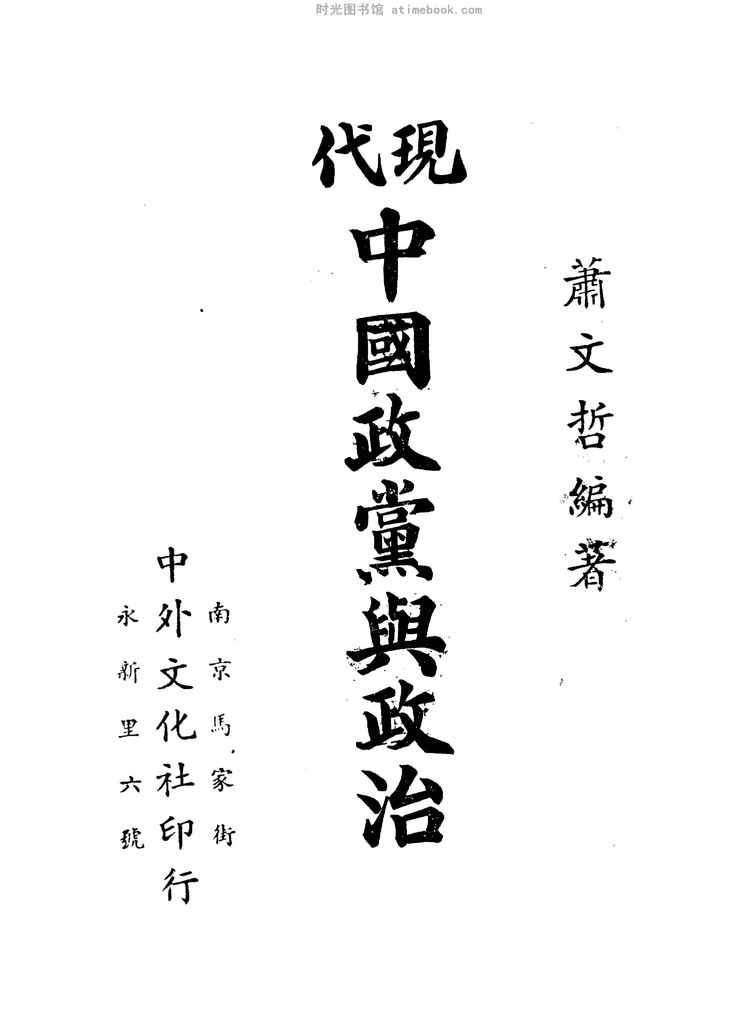 时光图书馆 atimebook.com
蕭文哲編著
現代
中國政黨與政治
南京馬家街
中外文化社印行
永新里六號